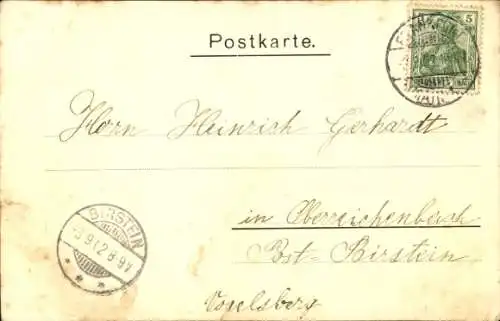 Postkarte.
5
Herrn Heinrich Gerhardt
in Oberreichenbach
Post-Birstein
Vogelsberg
BIRSTEIN